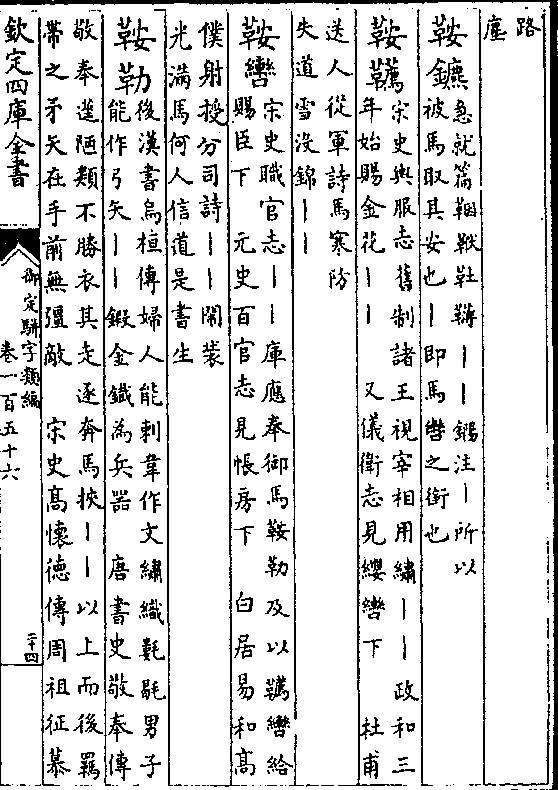 路
塵
鞍鑣急就篇鞇靯丨丨鍚注丨所以
被馬取其安也丨即馬轡之銜也
鞍韉宋史輿服志舊制諸王視宰相用繡丨丨政和三
年始賜金花丨丨 又儀衛志見纓轡下 杜甫
送人從軍詩馬寒防
失道雪没錦丨丨
鞍轡宋史職官志丨丨庫應奉御馬鞍勒及以韉轡給
賜臣下 元史百官志見帳房下 白居易和髙
僕射授分司詩丨丨閙裝
光滿馬何人信道是書生
鞍勒後漢書烏桓傳婦人能刺韋作文繡織氀毼男子
能作弓矢丨丨鍛金鐵為兵器 唐書史敬奉傳
敬奉陋類不勝衣其走逐奔馬挾丨丨以上而後羈
帶之矛矢在手前無彊敵 宋史髙懷德傳周祖征慕
欽定四庫全書
御定駢字類編
卷一百五十六
二十四